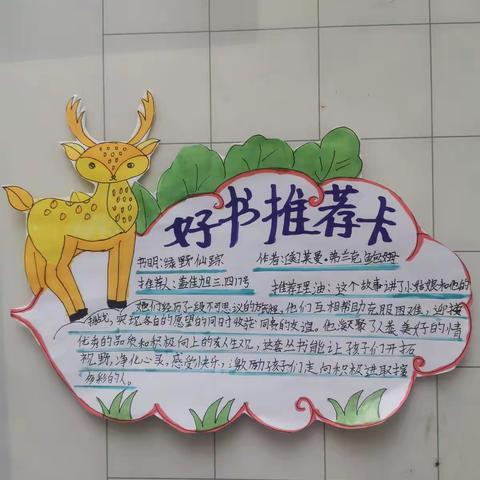 好书推荐卡
书明:绿野仙踪 作者:莱曼·弗兰克
推荐人:盖佳旭三、四17号 推荐理由:这个故事讲了小姑娘和他的
她们经历了一段不可思议的旅程,他们互相帮助克服困难,迎接
挑战,实现各自的愿望的同时收获同贵的友谊。他凝聚了美美好的情
优秀的品质和积极向上的友人生观,这套丛书能让孩子们开拓
视野,净化心灵,感受快乐,激励孩子们走向积极进取
多彩的人。